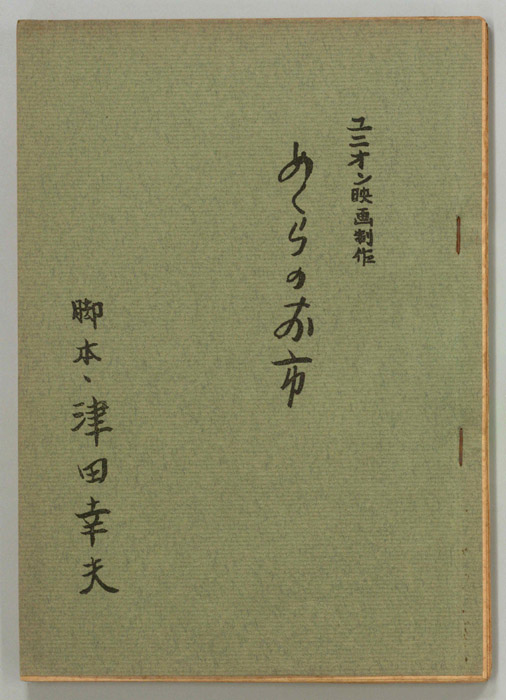 ユニオン映画制作
めくらのお市
脚本、津田幸夫